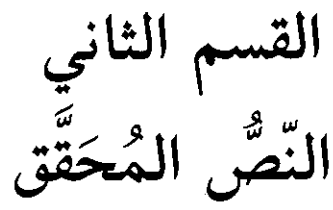 القسم الثاني
النّصُّ المُحَقَّق